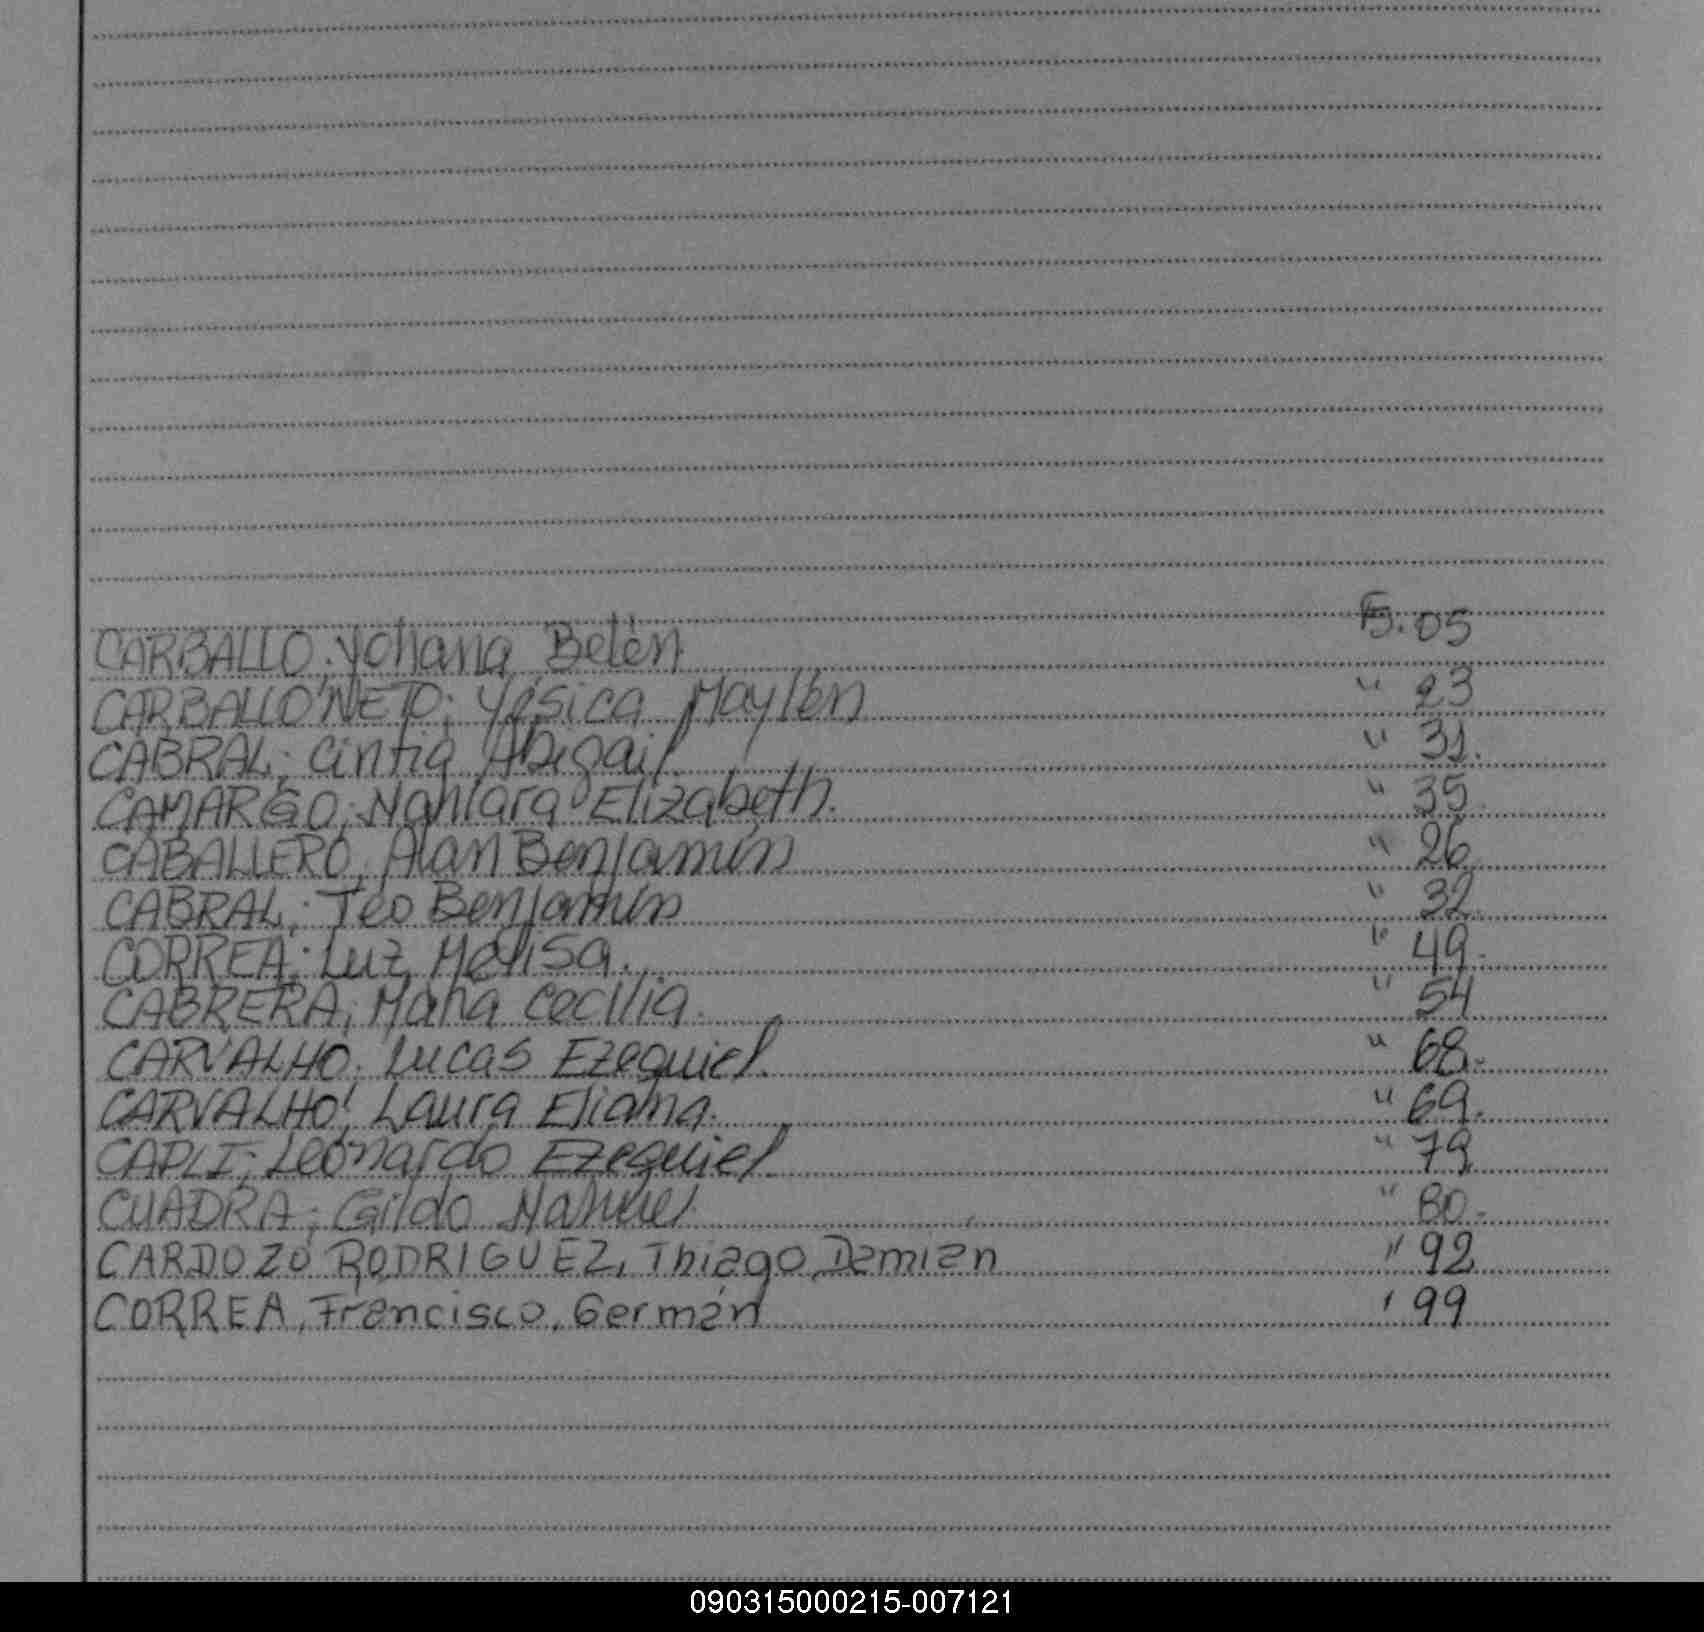 CARBALLO; Yohana Belén. Fj. 05
CARBALLO NETO; Yésica Maylén " 23
CABRAL; Cintia Abigail. " 31.
CAMARGO; Nahiara Elizabeth. " 35.
CABALLERO; Alan Benjamín " 26
CABRAL; Teo Benjamín " 32.
CORREA; Luz Melisa. " 49.
CABRERA; María Cecilia. " 54
CARVALHO; Lucas Ezequiel. " 68.
CARVALHO; Laura Eliana. " 69.
Leonardo Ezequiel. " 79
CUADRA; Gildo Nahuel. " 80.
CARDOZO RODRIGUEZ, Thiago Damian " 92
CORREA, Francisco, Germán ' 99
090315000215-007121